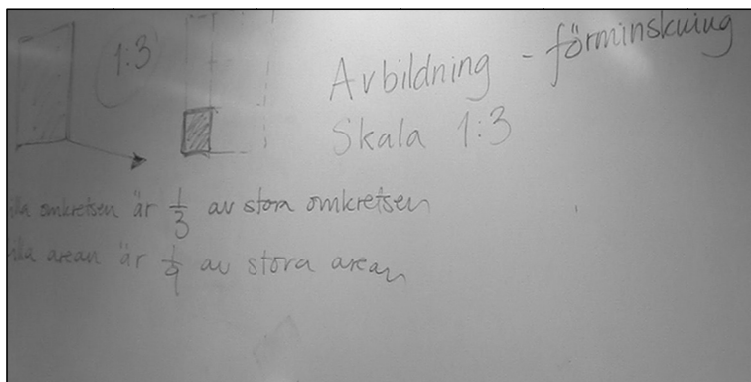 1:3
Avbildning - förminskning
Skala 1:3
lla omkretsen är 1/3 av stora omkretsen
lla arean är 1/9 av stora arean